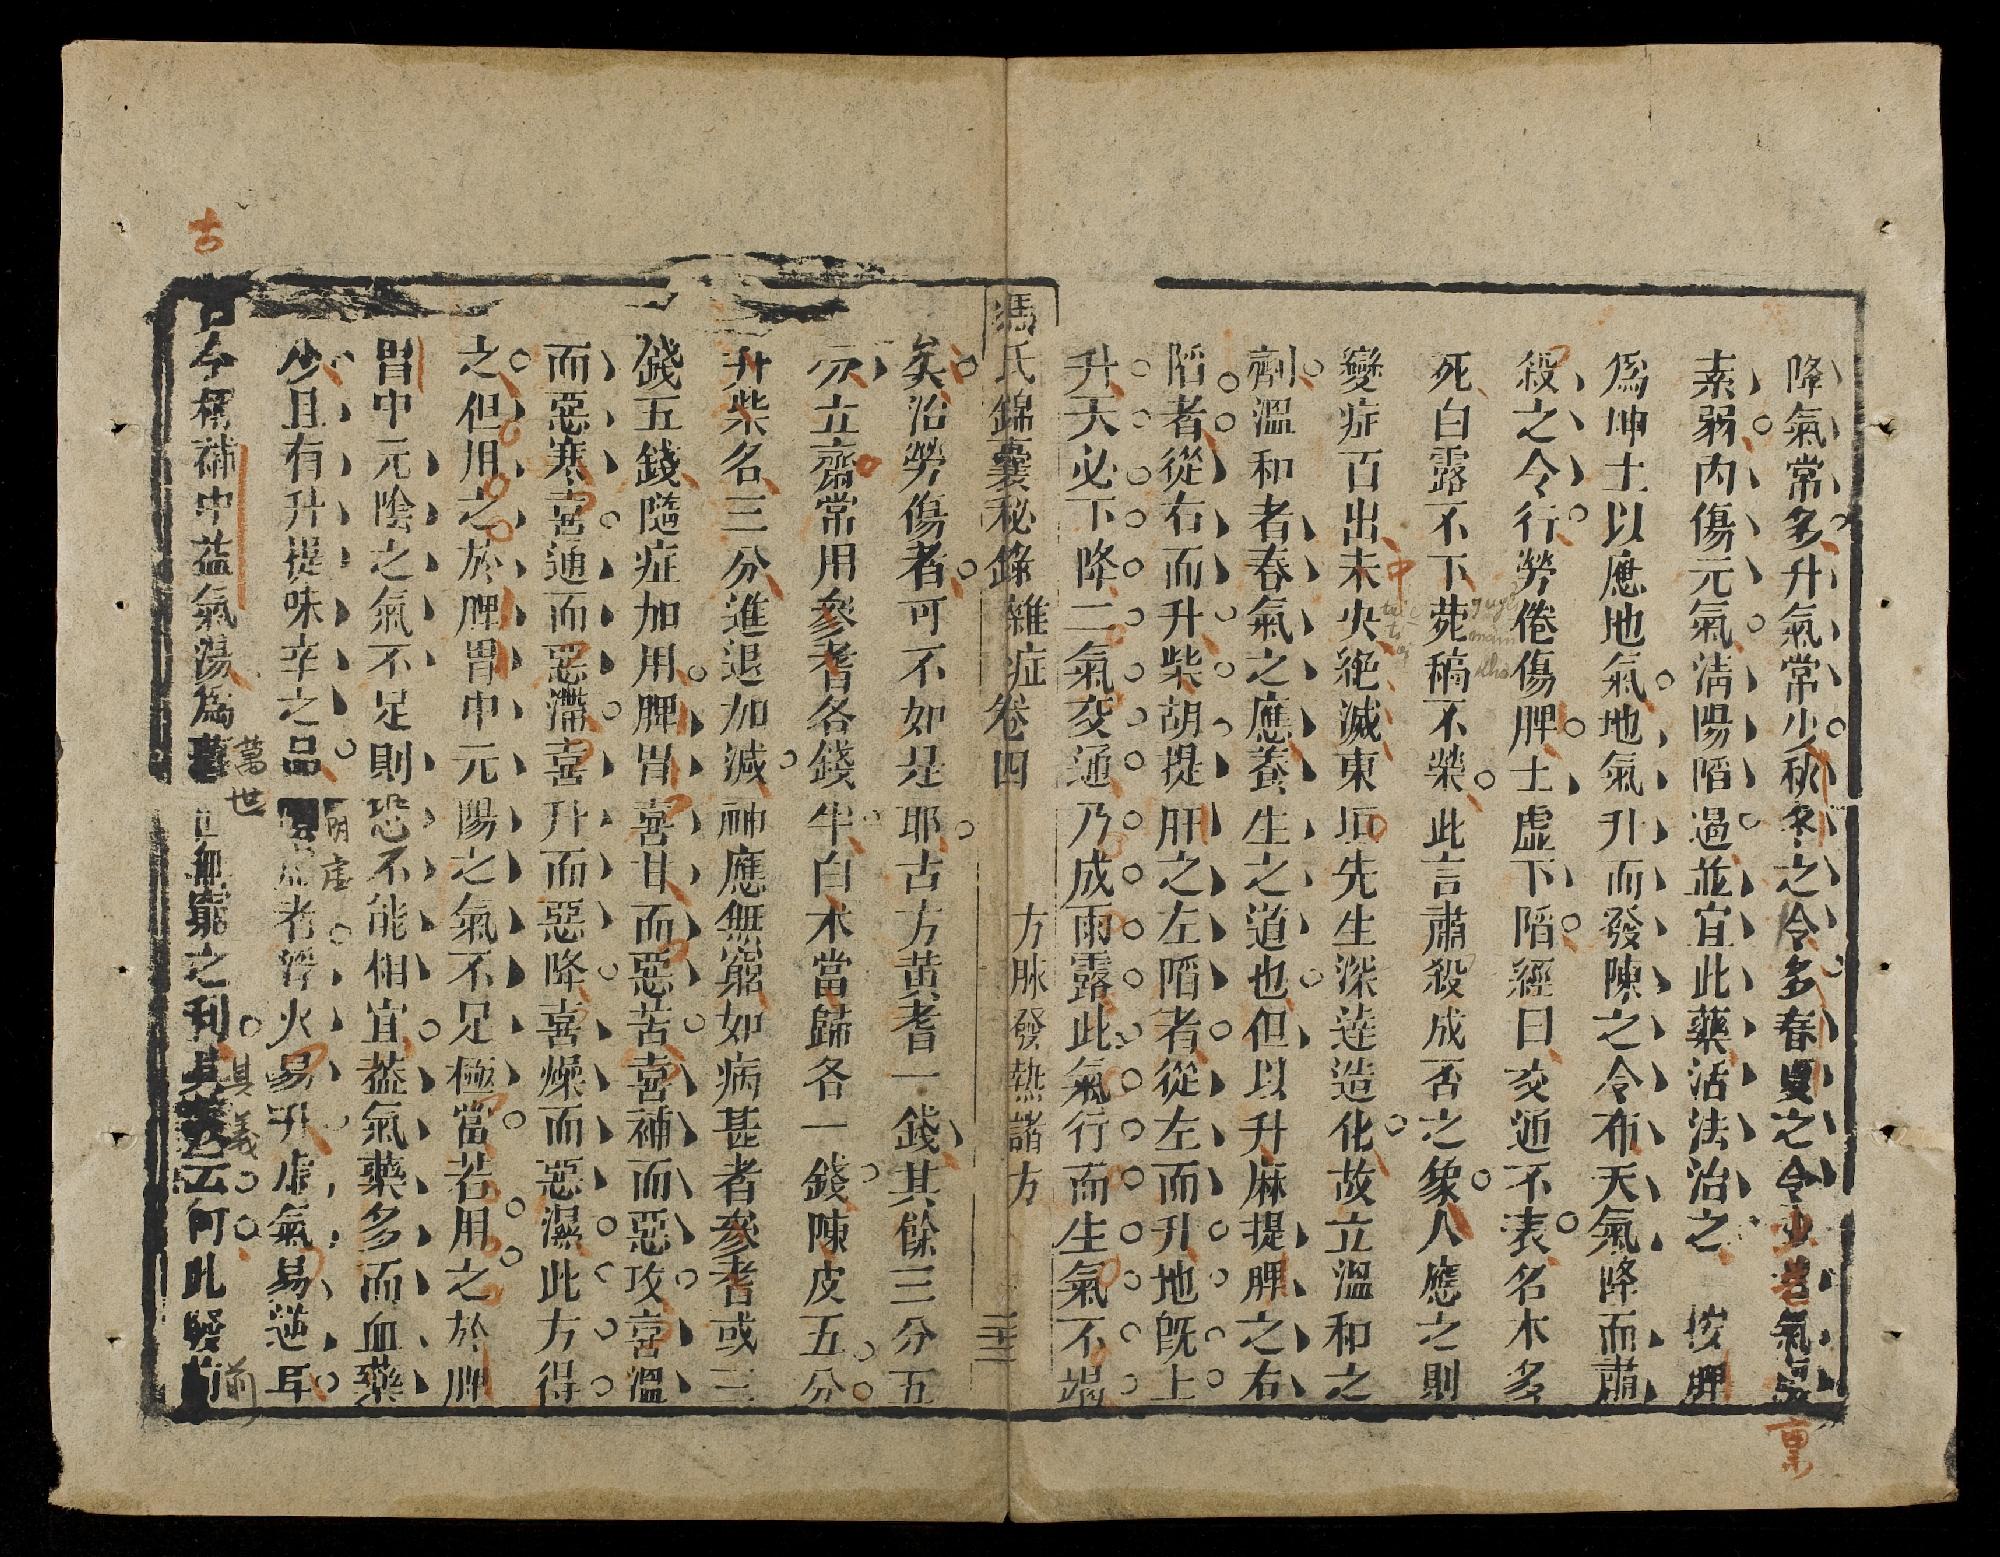 降氣常多升氣常少秋冬之令多春夏之令少若氣
稟
素弱內傷元氣清陽陷遏並宜此藥活法治之 按脾
爲坤土以應地氣地氣升而發陳之令布天氣降而肅
殺之令行勞倦傷脾土虛下陷經曰交通不表名木多
死白露不下菀稿不榮此言肅殺成否之象人應之則
中
變症百出未央絕滅東垣先生深達造化故立溫和之
劑溫和者春氣之應養生之道也但以升麻提脾之右
陷者從右而升柴胡提肝之左陷者從左而升地旣上
升天必下降二氣交通乃成雨露此氣行而生氣不竭
馮氏錦囊秘錄 雜症卷四 方脉發熱諸方 三十三
矣治勞傷者可不如是耶古方黄耆一錢其餘三分五
分立齋常用參耆各錢半白朮當歸各一錢陳皮五分
升柴各三分進退加減神應無窮如病甚者參耆或三
錢五錢隨症加用脾胃喜甘而惡苦喜補而惡攻喜溫
而惡寒喜通而惡滯喜升而惡降喜燥而惡濕此方得
之但用之於脾胃中元陽之氣不足極當若用之於脾
胃中元陰之氣不足則恐不能相宜葢氣藥多而血藥
少且有升提味辛之品 虛者浮火易升虛氣易逆耳
古
古今稱補中益氣湯爲萬世無窮之利其義云何此發前
萬世
其義
前